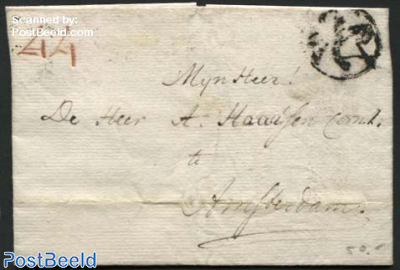 Scanned by:
PostBeeld.com
44
Mijn Heer!
De Heer A. Haaijsen
te
Amsterdam.
50,-
PostBeeld